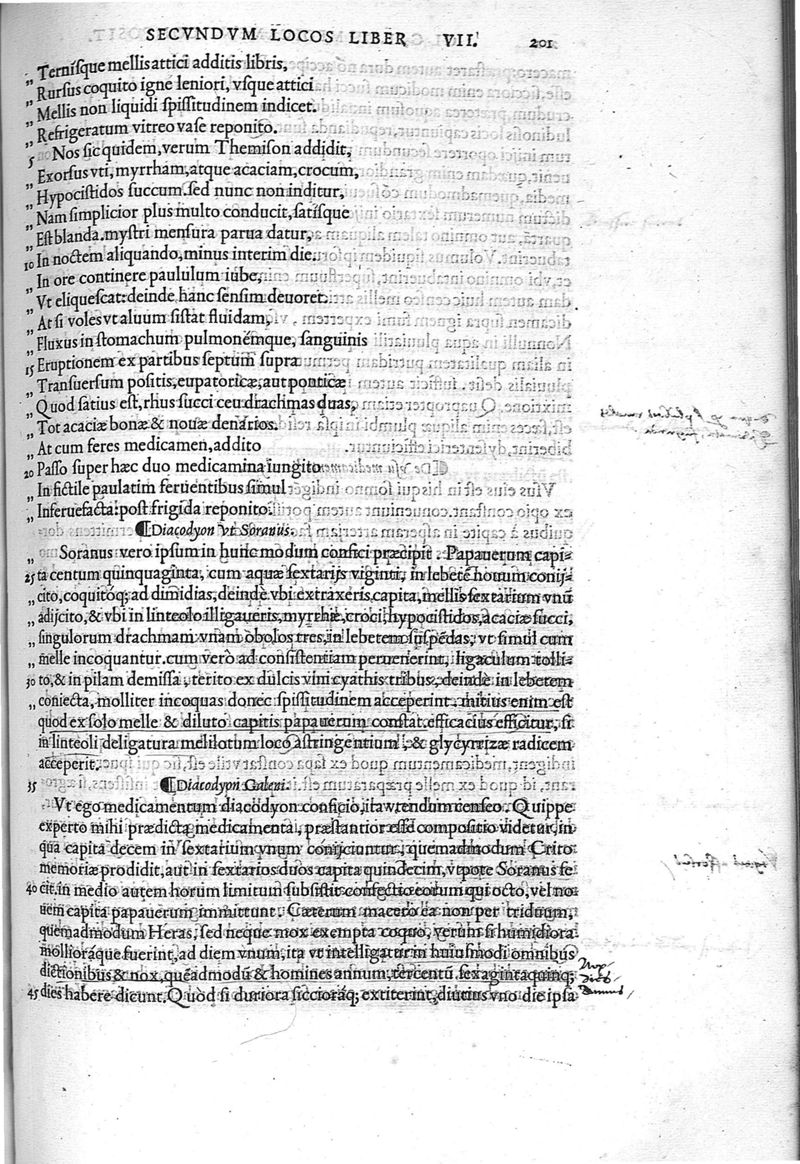 SECVNDVM LOCOS LIBER VII. 201
„ Ternisque mellis attici additis libris,
„ Rursus coquito igne leniori, vsque attici
„ Mellis non liquidi spissitudinem indicet.
„ Refrigeratum vitreo vase reponito.
5 Nos sic quidem, verum Themison addidit,
„ Exorsus vti, myrrham, atque acaciam, crocum,
„ Hypocistidos succum. sed nunc non inditur,
„ Nam simplicior plus multo conducit, satisque
„ Est blanda. mystri mensura parua datur,
10 In noctem aliquando, minus interim die.
„ In ore continere paululum iube,
„ Vt eliquescat: deinde hanc sensim deuoret.
„ At si voles vt aluum sistat fluidam,
„ Fluxus in stomachum pulmonémque, sanguinis
15 Eruptionem ex partibus septum supra
„ Transuersum positis, eupatoricæ, aut ponticæ
„ Quod satius est, rhus succi ceu drachmas duas,
„ Tot acaciæ bonæ & nouæ denarios.
„ At cum feres medicamen, addito
20 Passo super hæc duo medicamina iungito
„ In fictile paulatim feruentibus simul
„ Inferuefacta: post frigida reponito.
¶Diacodyon vt Soranus.
„ Soranus vero ipsum in hunc modum confici præcipit. Papauerum capi-
25 ta centum quinquaginta, cum aquæ sextarijs viginti, in lebetē nouum conij-
„ cito, coquitoq; ad dimidias, deinde vbi extraxeris, capita, mellis sextarium vnū
„ adijcito, & vbi in linteolo illigaueris, myrrhæ, croci, hypocistidos, acaciæ succi,
„ singulorum drachmam vnam obolos tres, in lebetem suspēdas, vt simul cum
„ melle incoquantur. cum verò ad consistentiam peruenerint, ligaculum tolli-
30 to, & in pilam demissa, terito ex dulcis vini cyathis tribus, deinde in lebetem
„ coniecta, molliter incoquas donec spissitudinem acceperint. mitius enim est
quod ex solo melle & diluto capitis papauerum constat. efficacius efficitur, si
in linteoli deligatura melilotum loco astringentium, & glycyrrizæ radicem
acceperit.
35 ¶Diacodyon Galeni.
Vt ego medicamentum diacodyon conficio, ita vtendum censeo. Quippe
experto mihi prædicta medicamenta, præstantior esse compositio videtur, in
qua capita decem in sextarium vnum conijciuntur, quemadmodum Crito
memoriæ prodidit, aut in sextarios duos capita quindecim, vtpote Soranus fe
40 cit, in medio autem horum limitum subsistit confectio eorum qui octo, vel no
uem capita papauerum immittunt. Cæterum macero ea non per triduum,
quemadmodum Heras, sed neque mox exempta coquo, verum si humidiora
mollioráque fuerint, ad diem vnum, ita vt intelligatur in huiusmodi omnibus
dictionibus & nox, quēadmodū & homines annum, tercentū, sexagintaquinq;
45 dies habere dicunt. Quòd si duriora siccioráq; extiterint, diutius vno die ipsa